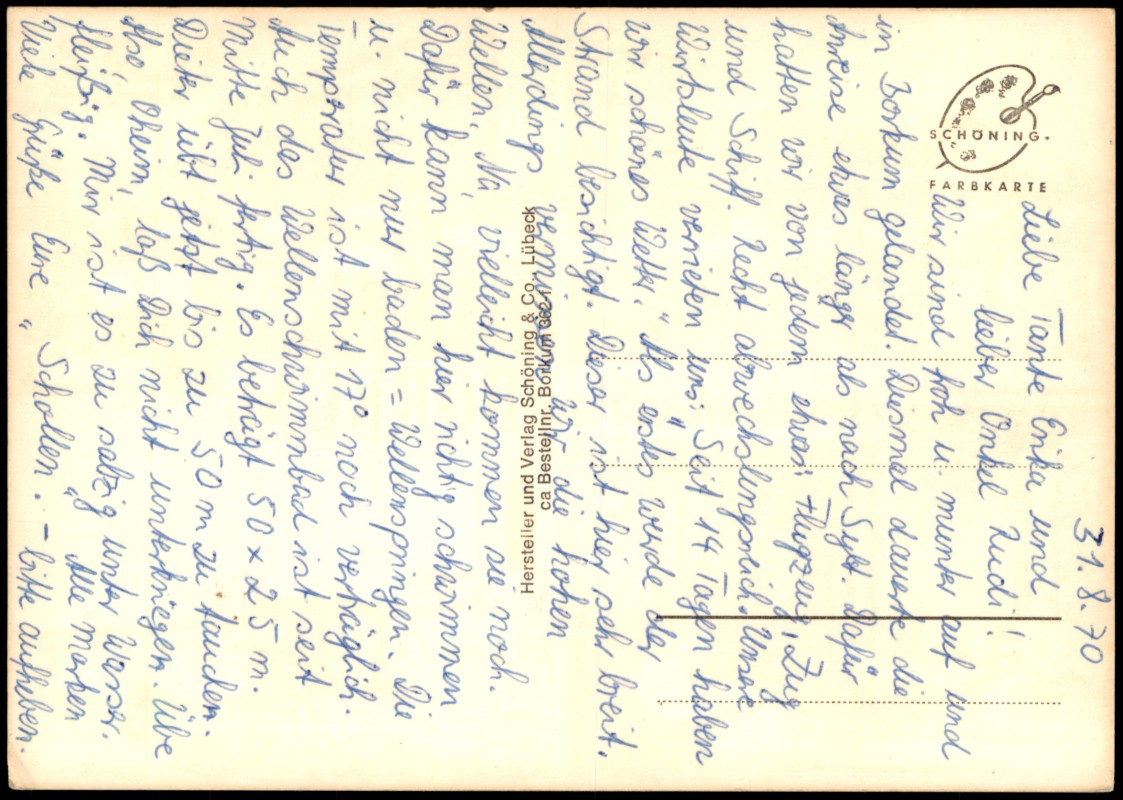 SCHÖNING.
FARBKARTE
31. 8. 70
Liebe Tante Erika und
lieber Onkel Rudi!
Wir sind froh u. munter auf und
in Borkum gelandet. Diesmal dauerte die
Anreise etwas länger als nach Sylt. Dafür
hatten wir von jedem etwas: Flugzeug, Zug
und Schiff. Recht abwechslungsreich. Unsere
Wirtsleute verrieten uns: "Seit 14 Tagen haben
wir schönes Wetter." Als erstes wurde der
Strand besichtigt. Dieser ist hier sehr breit.
Allerdings vermissen wir die hohen
Wellen. Na, vielleicht kommen sie noch.
Dafür kann man hier richtig schwimmen
u. nicht nur baden = Wellenspringen. Die
Temperatur ist mit 17° noch verträglich.
Auch das Wellenschwimmbad ist seit
Mitte Juli fertig. Es beträgt 50 x 25 m.
Dieter übt jetzt bis zu 50 m zu tauchen.
Also Oheim, laß Dich nicht unterkriegen. Übe
fleißig. Mir ist es zu salzig unter Wasser.
Viele Grüße Eure "Schollen". "Alle Marken
- bitte aufheben.
Hersteller und Verlag Schöning & Co., Lübeck
ca Bestellnr. Borkum